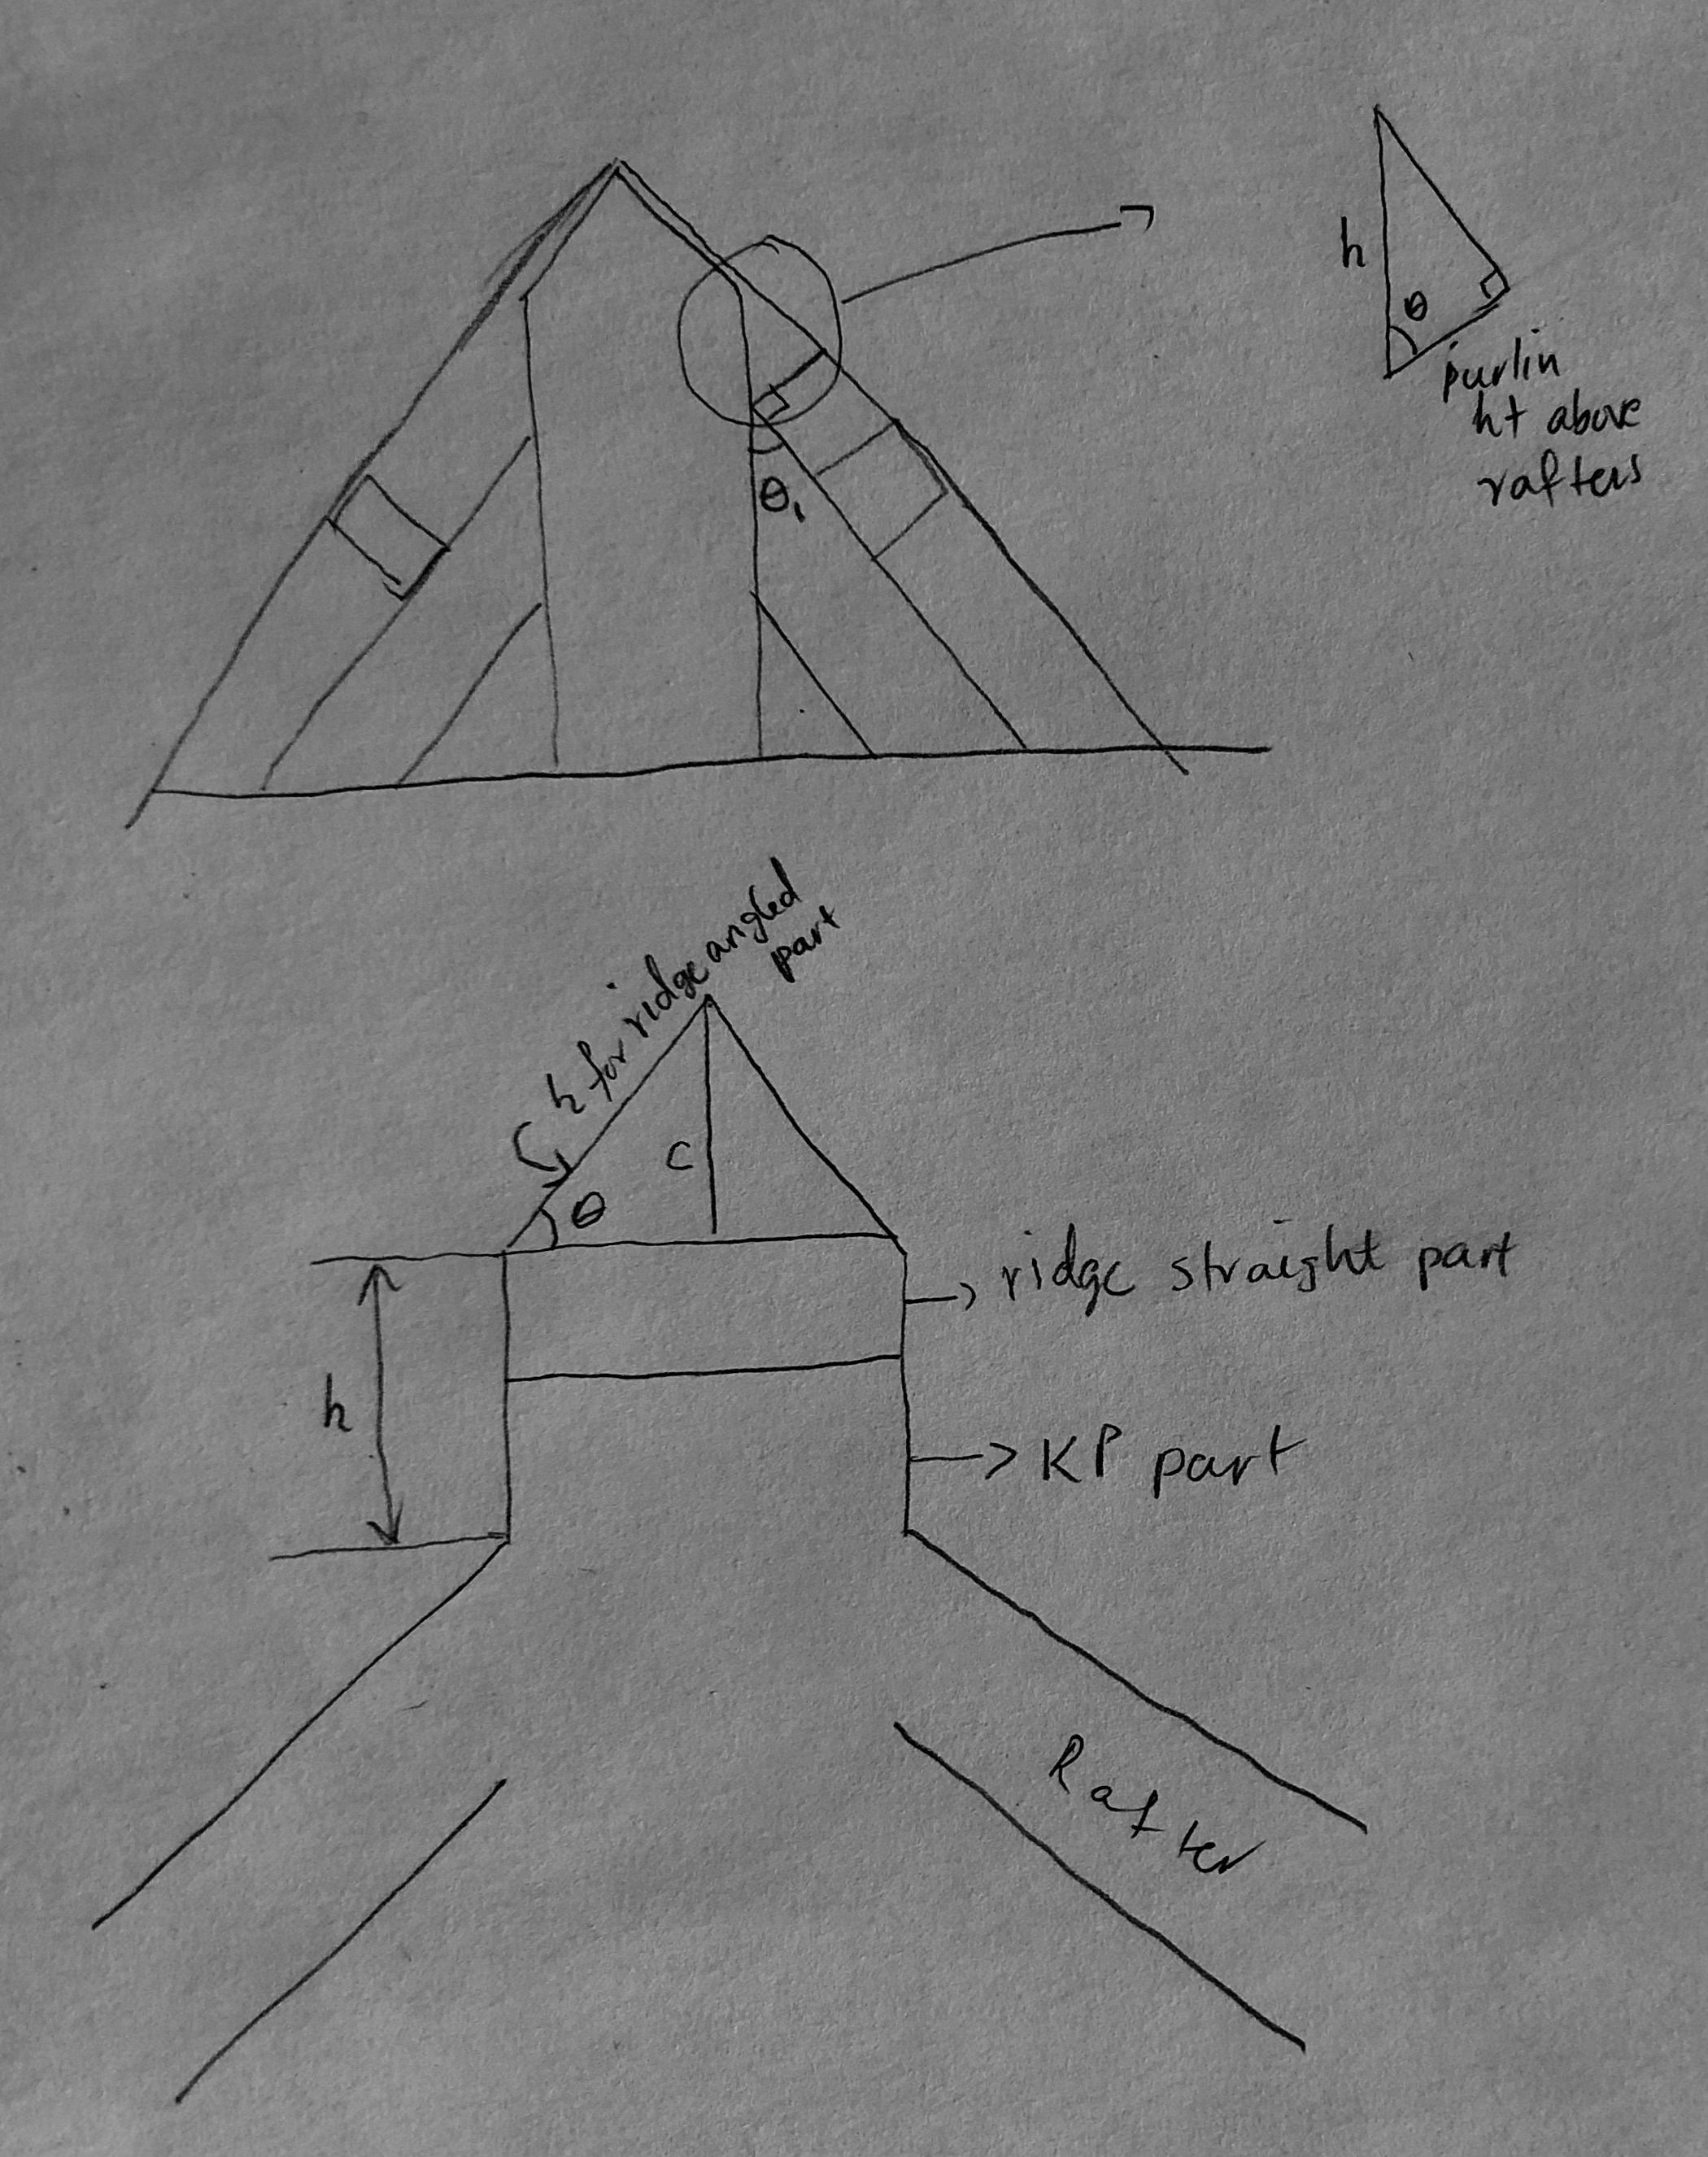 h
θ
purlin
ht above
rafters
θ1
h for ridge angled
part
c
θ
ridge straight part
h
KP part
Rafter